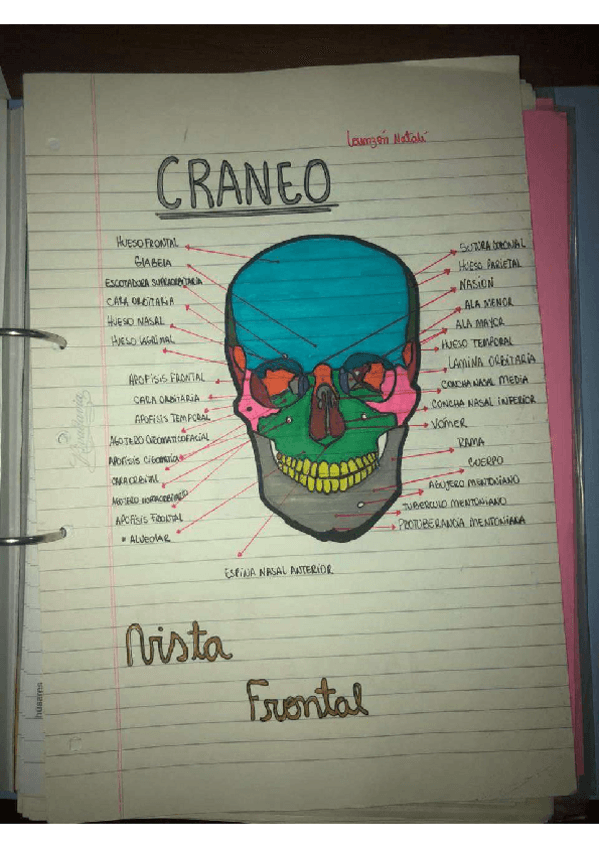 Lorenzón Natalí
CRANEO
HUESO FRONTAL
GLABELA
ESCOTADURA SUPRAORBITARIA
CARA ORBITARIA
HUESO NASAL
HUESO LAGRIMAL
APOFISIS FRONTAL
CARA ORBITARIA
APOFISIS TEMPORAL
AGUJERO CIGOMATICOFACIAL
APOFISIS CIGOMATICA
CARA ORBITAL
AGUJERO INFRAORBITARIO
APOFISIS FRONTAL
" ALVEOLAR
SUTURA CORONAL
HUESO PARIETAL
NASION
ALA MENOR
ALA MAYOR
HUESO TEMPORAL
LAMINA ORBITARIA
CONCHA NASAL MEDIA
CONCHA NASAL INFERIOR
VOMER
RAMA
CUERPO
AGUJERO MENTONIANO
TUBERCULO MENTONIANO
PROTUBERANCIA MENTONIANA
ESPINA NASAL ANTERIOR
Vista
Frontal
húsares